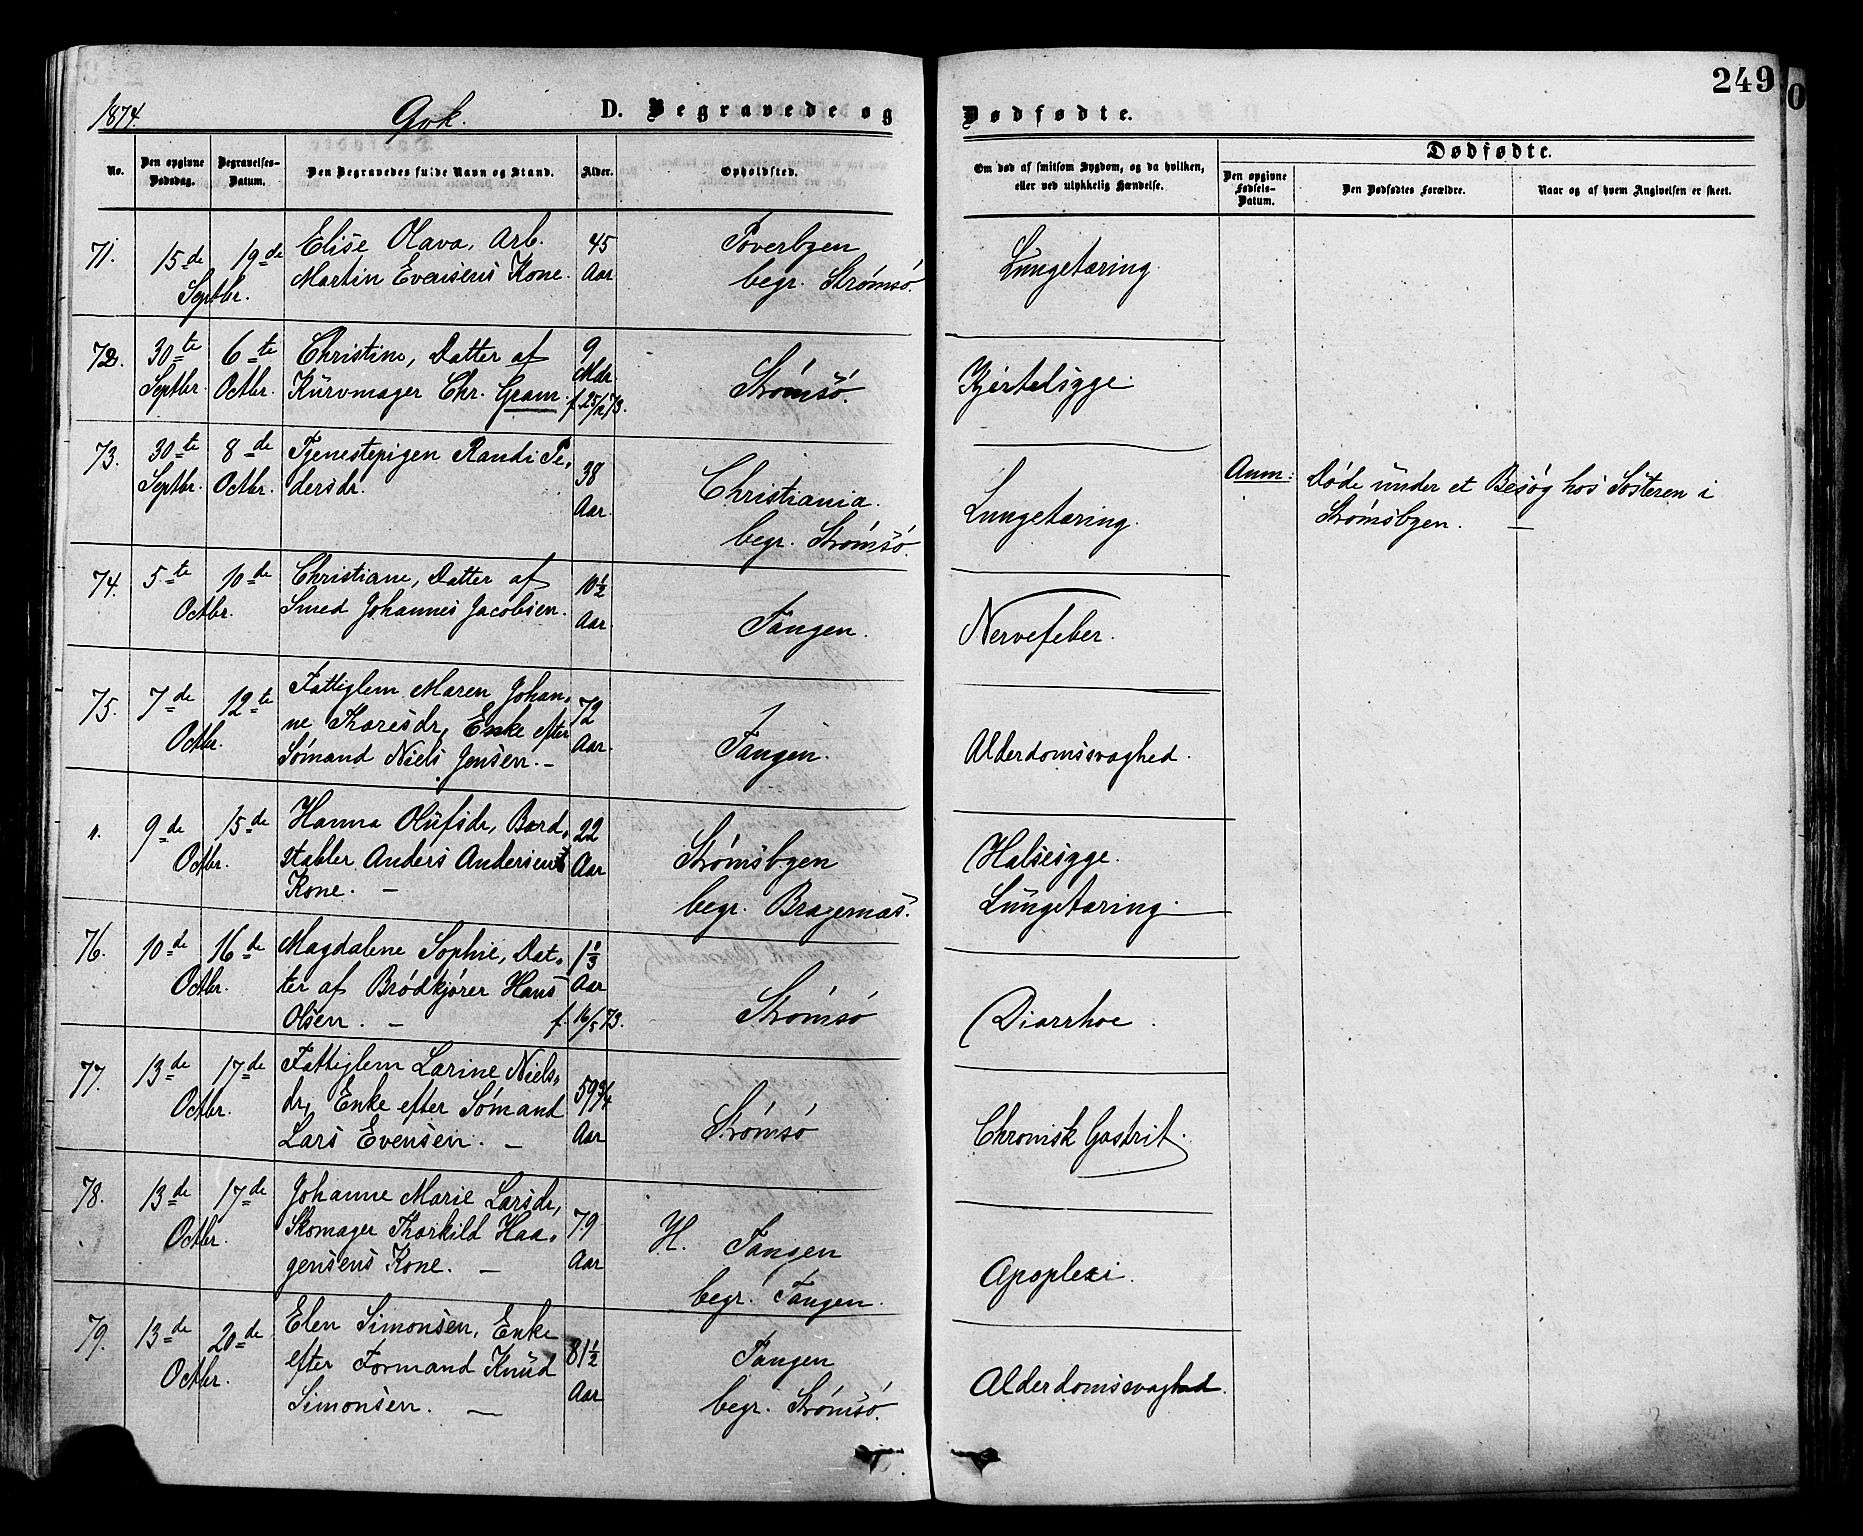 249
0
1874.
Qvk.
D. Begravede og
Dødfødte.
No.
Den opgivne Dødsdag.
Begravelses-Datum.
Den Begravedes fulde Navn og Stand.
Alder.
Opholdsted.
Om død af smitsom Sygdom, og da hvilken, eller ved ulykkelig Hændelse.
Dødfødte.
Den opgivne Fødsels-Datum.
Den Dødfødtes Forældre.
Naar og af hvem Angivelsen er skeet.
71. 15de 19de Septbr.
Elise Olava, Arb.
Martin Evensens Kone.
45 Aar
Toverbyen
begr. Strømsö.
Lungetæring.
72. 30te Septbr. 6te Octbr.
Christine, Datter af
Kurvmager Chr. Gram.
9 Mdr. f. 25/12 73.
Strömsö.
Kjertelsyge.
73. 30te Septbr. 8de Octbr.
Tjenestepigen Randi Pe-
dersdr.
38 Aar.
Christiania.
begr. Strömsö.
Lungetæring.
Anm: Døde under et Besøg hos Søsteren i
Strømsbyen. —
74. 5te 10de Octbr.
Christiane, Datter af
Smed Johannes Jacobsen.
10½ Aar.
Tangen.
Nervefeber.
75. 7de 12te Octbr.
Fattiglem Maren Johan-
ne Thoresdr, Enke efter
Sömand Niels Jensen. —
72 Aar.
Tangen.
Alderdomssvaghed.
". 9de 15de Octbr.
Hanna Olufsdr, Bord-
stabler Anders Andersens
Kone. —
22 Aar
Strömsbyen
begr. Bragernæs.
Halsesyge.
Lungetæring.
76. 10de 16de Octbr.
Magdalene Sophie, Dat-
ter af Brödkjörer Hans
Olsen. —
1⅓ Aar f. 16/5 73.
Strömsö
Diarrhoe.
77. 13de 17de Octbr.
Fattiglem Larine Niels-
dr, Enke efter Sömand
Lars Evensen. —
59¾ Aar
Strömsö
Chronisk Gastrit.
78. 13de 17de Octbr.
Johanne Marie Larsdr,
Skomager Thorkild Haa-
gensens Kone. —
79 Aar
H. Tangen
begr. Tangen.
Apoplexi.
79. 13de 20de Octbr.
Elen Simonsen, Enke
efter Formand Knud
Simonsen. —
81½ Aar
Tangen
begr. Strömsö.
Alderdomssvaghed.